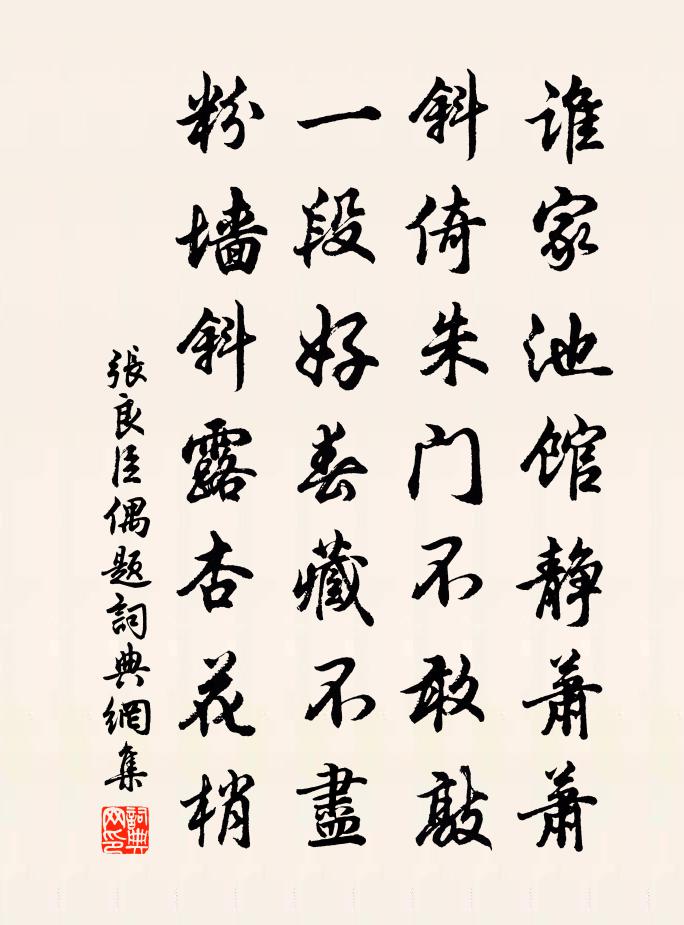 谁家池馆静萧萧
斜倚朱门不敢敲
一段好春藏不盡
粉墙斜露杏花梢
張良臣偶題詞典網集
詞典
网印